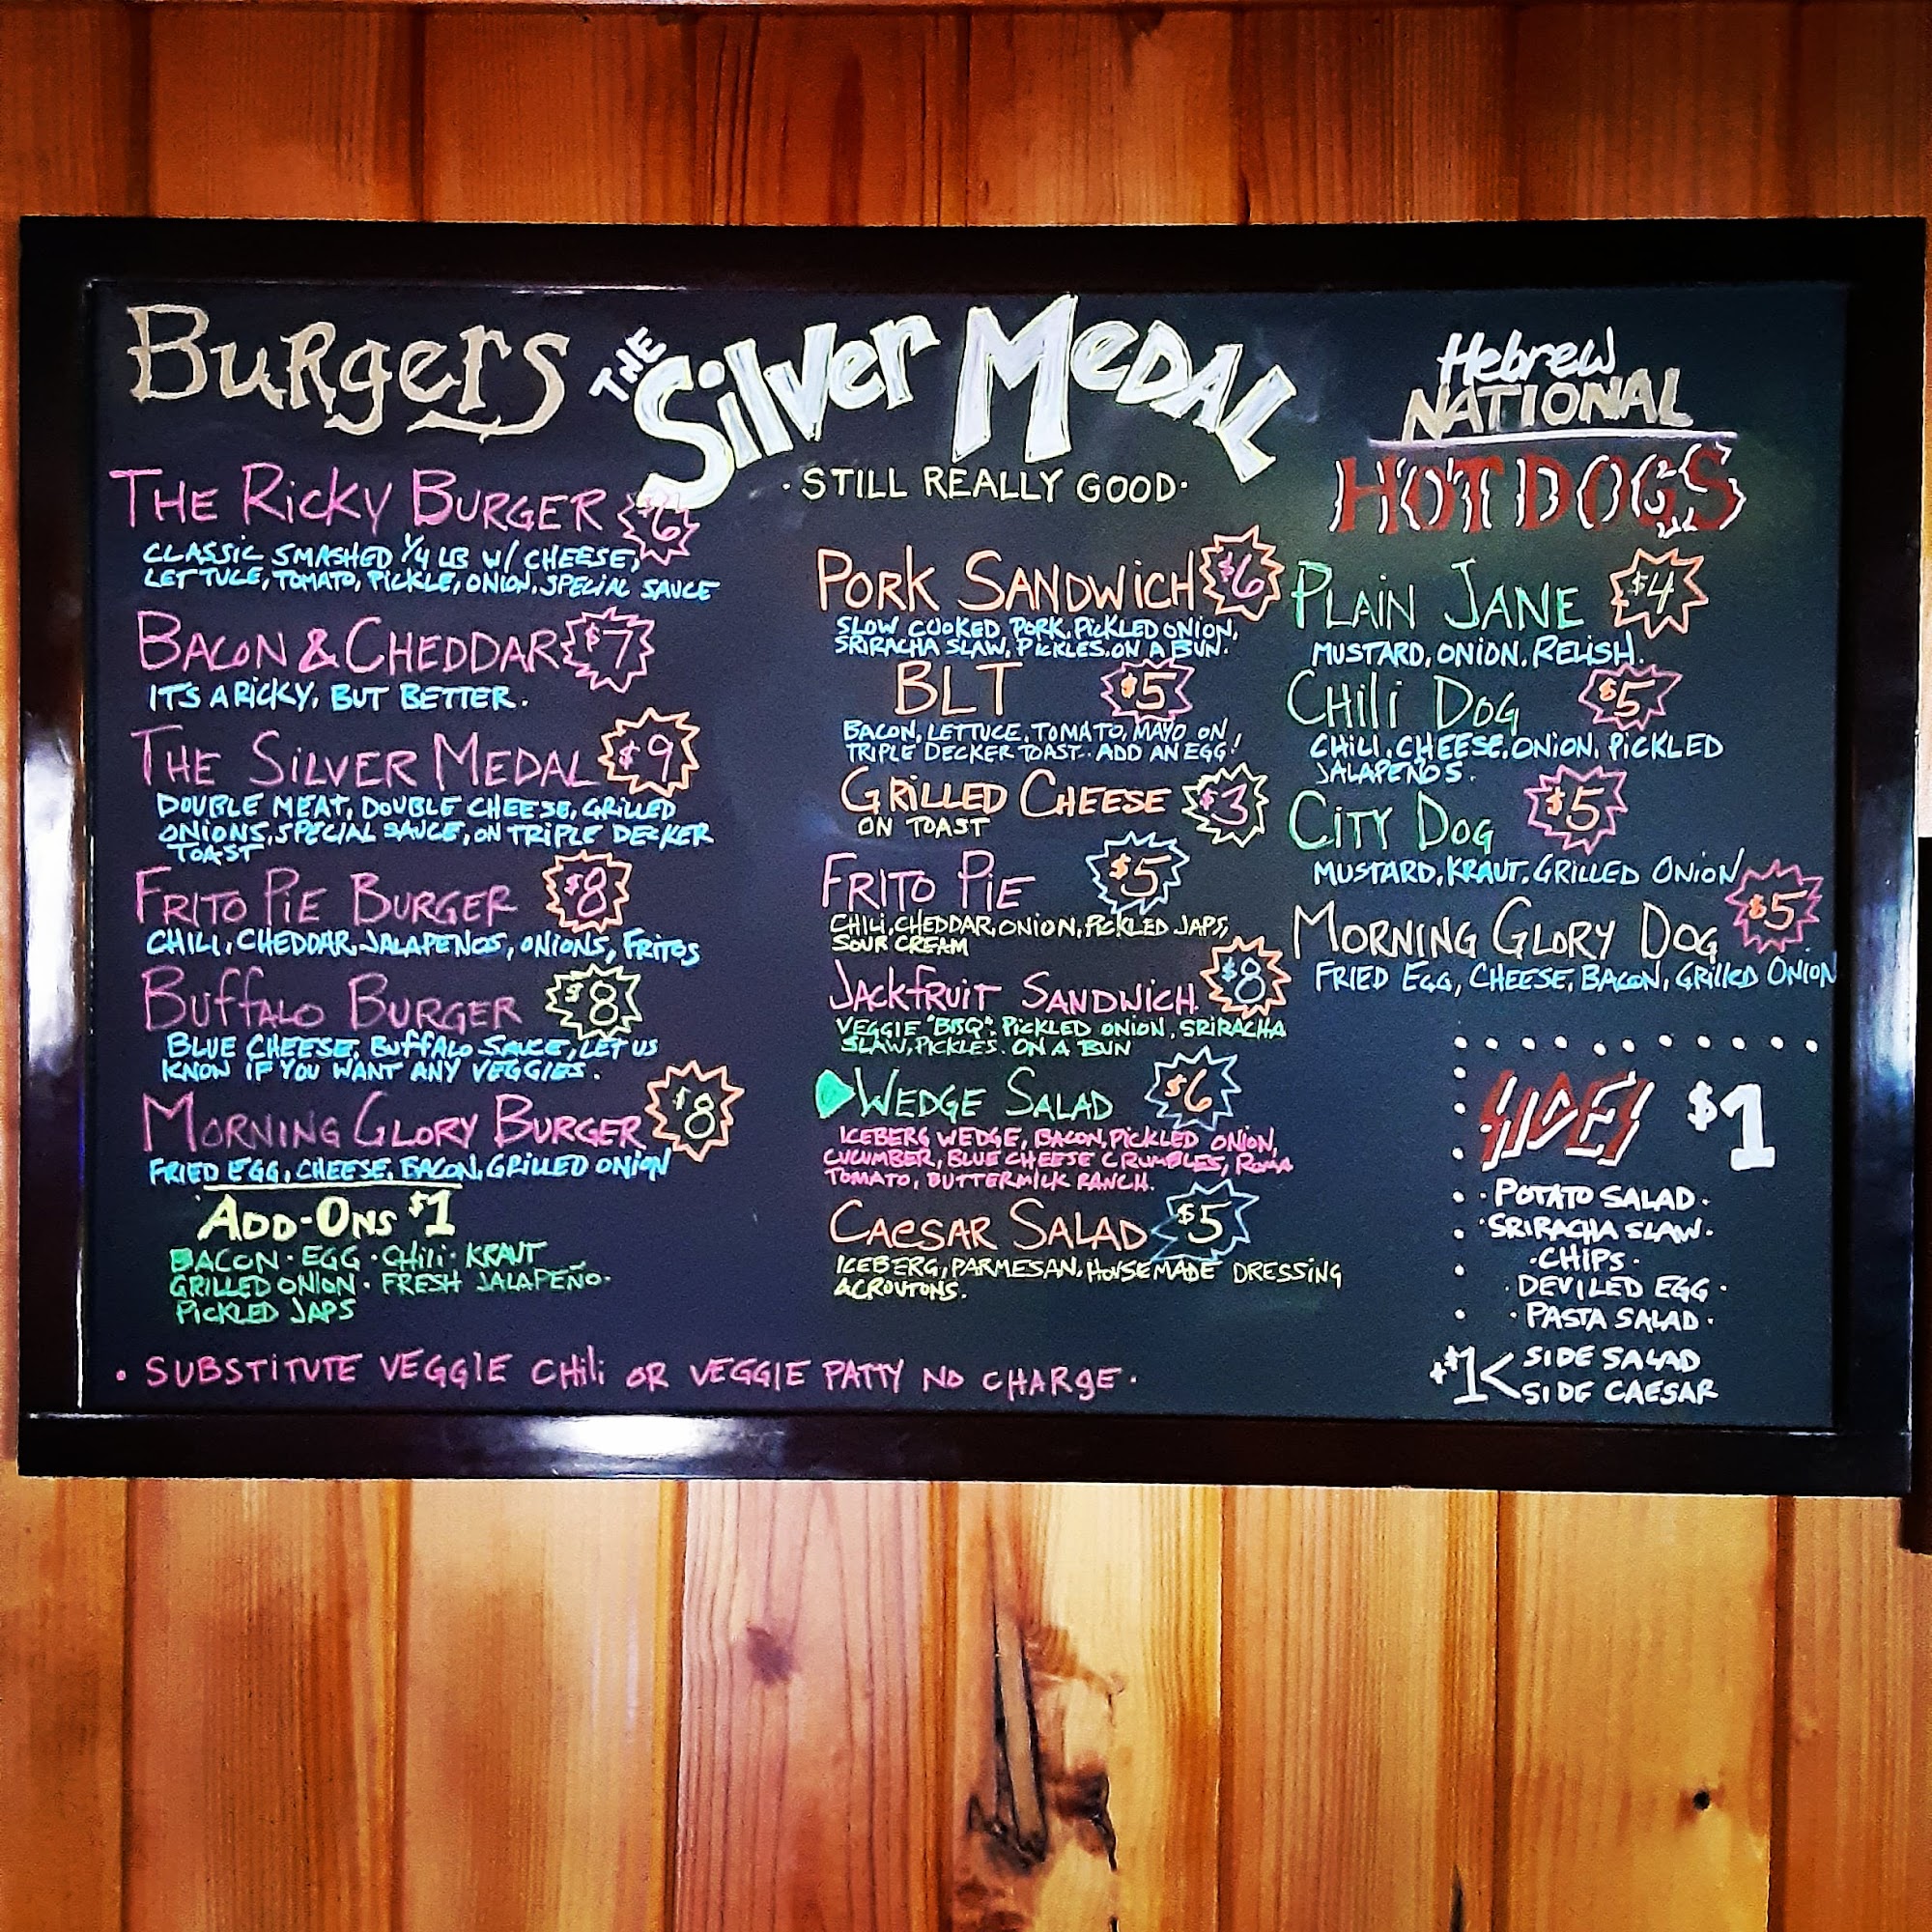 Burgers
THE RICKY BURGER $6
CLASSIC SMASHED 1/4 LB W/ CHEESE,
LETTUCE, TOMATO, PICKLE, ONION, SPECIAL SAUCE
BACON & CHEDDAR $7
IT'S A RICKY, BUT BETTER.
THE SILVER MEDAL $9
DOUBLE MEAT, DOUBLE CHEESE, GRILLED
ONIONS, SPECIAL SAUCE, ON TRIPLE DECKER
TOAST
FRITO PIE BURGER $8
CHILI, CHEDDAR, JALAPENOS, ONIONS, FRITOS
BUFFALO BURGER $8
BLUE CHEESE, BUFFALO SAUCE, LET US
KNOW IF YOU WANT ANY VEGGIES.
MORNING GLORY BURGER $8
FRIED EGG, CHEESE, BACON, GRILLED ONION
ADD-ONS $1
BACON · EGG · CHILI · KRAUT
GRILLED ONION · FRESH JALAPEÑO ·
PICKLED JAPS
· SUBSTITUTE VEGGIE CHILI OR VEGGIE PATTY NO CHARGE ·
THE SILVER MEDAL
· STILL REALLY GOOD ·
PORK SANDWICH $6
SLOW COOKED PORK, PICKLED ONION,
SRIRACHA SLAW, PICKLES. ON A BUN.
BLT $5
BACON, LETTUCE, TOMATO, MAYO ON
TRIPLE DECKER TOAST.. ADD AN EGG!
GRILLED CHEESE $3
ON TOAST
FRITO PIE $5
CHILI, CHEDDAR, ONION, PICKLED JAPS,
SOUR CREAM
JACKFRUIT SANDWICH $8
VEGGIE "BBQ", PICKLED ONION, SRIRACHA
SLAW, PICKLES. ON A BUN
WEDGE SALAD $6
ICEBERG WEDGE, BACON, PICKLED ONION,
CUCUMBER, BLUE CHEESE CRUMBLES, ROMA
TOMATO, BUTTERMILK RANCH.
CAESAR SALAD $5
ICEBERG, PARMESAN, HOUSEMADE DRESSING
& CROUTONS.
Hebrew
NATIONAL
HOT DOGS
PLAIN JANE $4
MUSTARD, ONION, RELISH.
CHILI DOG $5
CHILI, CHEESE, ONION, PICKLED
JALAPEÑOS.
CITY DOG $5
MUSTARD, KRAUT, GRILLED ONION
MORNING GLORY DOG $5
FRIED EGG, CHEESE, BACON, GRILLED ONION
SIDES $1
· POTATO SALAD ·
· SRIRACHA SLAW ·
· CHIPS ·
· DEVILED EGG ·
· PASTA SALAD ·
+$1< SIDE SALAD
SIDE CAESAR